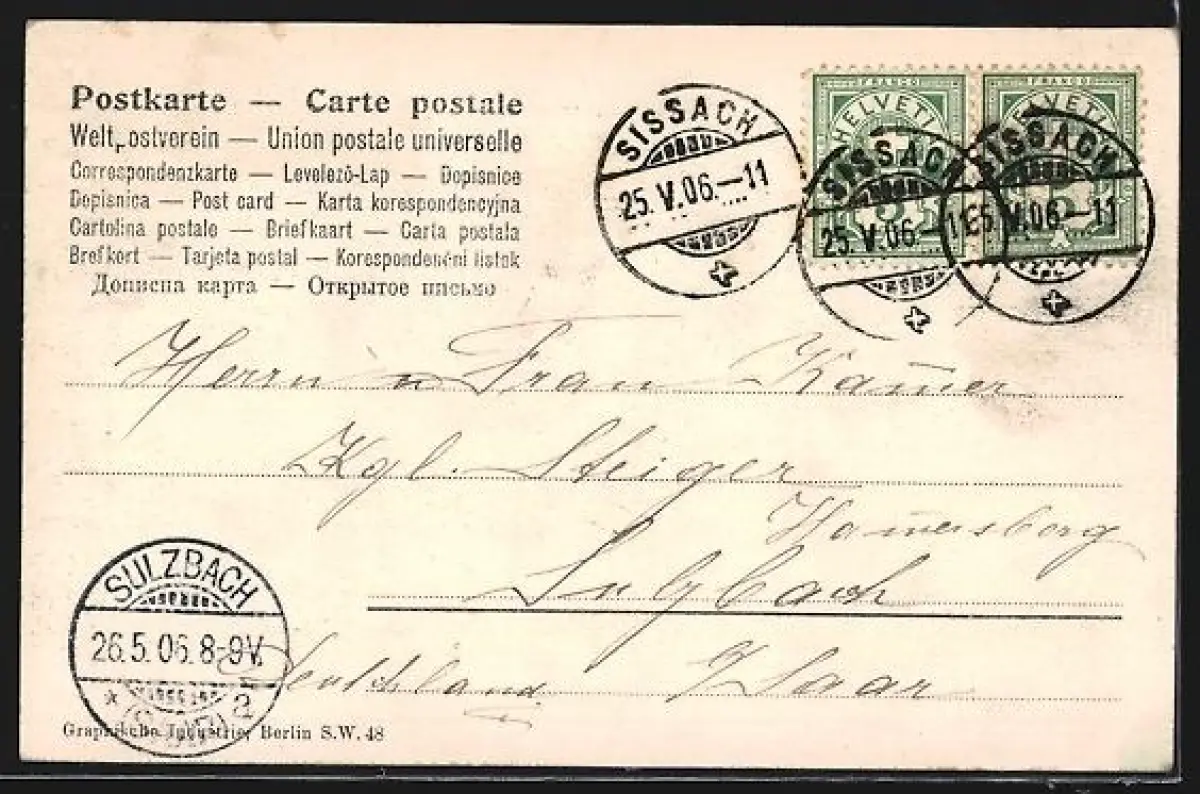 Postkarte — Carte postale
Weltpostverein — Union postale universelle
Correspondenzkarte — Levelező-Lap — Dopisnice
Dopisnica — Post card — Karta korespondencyjna
Cartolina postale — Briefkaart — Carta postala
Brefkort — Tarjeta postal — Korespondenčni listek
Дописна карта — Открытое письмо
SISSACH
25.V.06.–11
FRANCO
HELVETI
5
FRANCO
HELVETI
SISSACH
25.V.06–11
SISSACH
25.V.06–11
Herrn u Frau Kam̄er
Kgl. Steiger
Ham̄ersberg
Sulzbach
Deutschland a/Saar
SULZBACH
26.5.06.8-9V.
* (SAAR) a
Graphische Industrie, Berlin S.W. 48